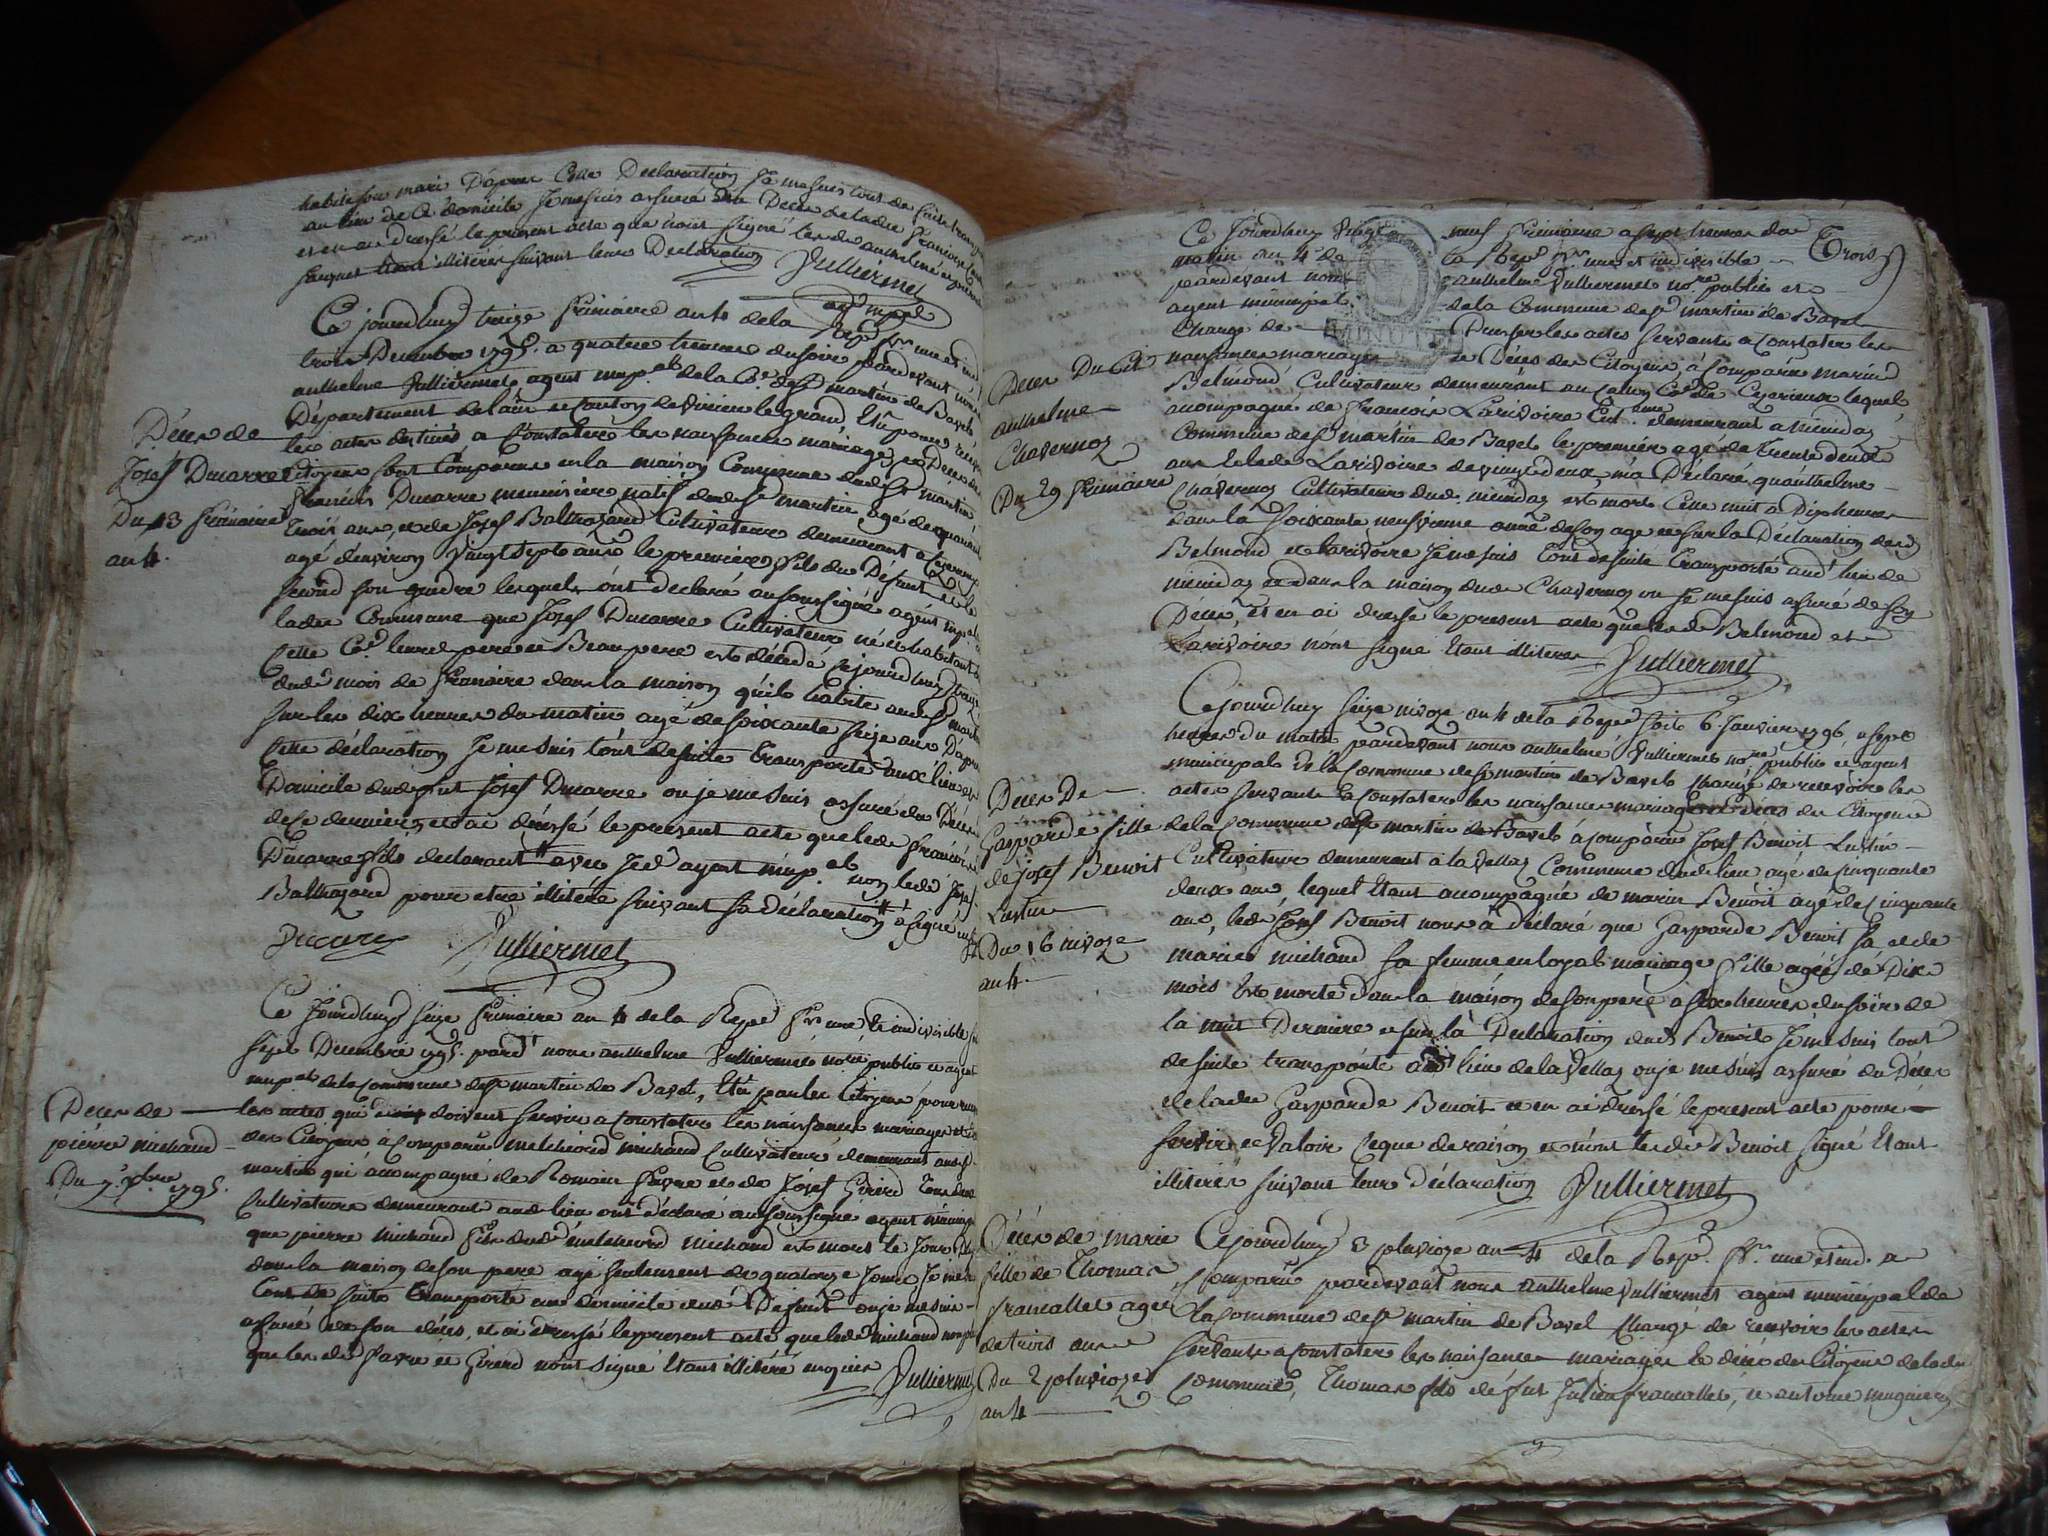 habite son mari D'apres Cette Declaration Je me suis tout de suite
au lieu de Ce domicile Je me suis assuré du Deces de lade francoise
et en ai dressé le present acte que nont signé
illiteres suivant leur Declaration Vulliermet
agt mpal
Ce jourdhuy treize frimaire an 4 de la Repe fse une et ind
trois Decembre 1795. a quatre heures du soir pardevant nous
anthelme Vulliermet agent mupal de la Ce de St martin de Bavel
Département de lain et Canton de virieu le grand, Elu pour
les actes destinés a Constater les naissances mariages et Deces de
Décès de
Josef Ducarre
Du 13 frimaire
an 4.
Citoyens sont Comparus en la maison Commune dud St martin
francois Ducarre menuisier natif dud St martin agé de quarante
trois ans, et de Josef Balthazard Cultivateur demeurant a
agé denviron vingt sept ans le premier fils du Défunt et le
second son gendre lesquels ont declaré au soussigné agent mupal
lade Commune que Josef Ducarre Cultivateur né et habitant
Cette Ce leur pere et Beaupere est décédé cejourdhuy treize
dud mois de frimaire dans la maison quil habite aud St martin
sur les dix heures du matin agé de soixante seize ans Dapres
Cette déclaration Je me suis tout de suite transporté aux lieu et
Domicile dud fut Josef Ducarre ou je me suis assuré du Décès
de Ce dernier, et ai dressé le present acte que led francois
Ducarre fils declarant avec Led agent mupal non led Josef
Balthazard pour etre illitéré suivant sa déclaration a signé
Ducarre Vulliermet
Ce Jourdhuy Seize frimaire an 4 de la Repe fse une et indivisible
sept Decembre 1795. pardt nous anthelme Vulliermet nore public et agent
mupal de la Commune de St martin de Bavel, Elu par les Citoyens pour
Deces de
pierre michaud
Du 7 Xbre 1795.
les actes qui doivent servir a Constater les naissances mariages et
des Citoyens à Comparu melchiord michaud Cultivateur demeurant aud St
martin qui accompagne de Romain favre et de Josef Girerd Tous deux
Cultivateurs demeurant aud lieu ont déclaré au soussigné agent
que pierre michaud fils dud melchiord michaud est mort le Jour
dans la maison de son pere agé seulement de quatorze Jours Je me
tout de suite transporté au domicile dud Défunt ou je me suis
assuré de son décès, et ai dressé le present acte que led michaud
que les de favre et Girerd nont signé Etant illitéré Vulliermet
Ce Jourdhuy vingt neuf frimaire a sept heures du
matin an 4 de la Repe fse une et indivisible
Trois
pardevant nous anthelme Vulliermet nore public et
agent municipal de la Commune de St martin de Bavel
Chargé de Dresser les actes servants a Constater les
MINUTE
Deces Du Cit
anthelme
Chavernoz
Du 29 frimaire
naissances mariages et Déces des Citoyens, à Comparu marin
Belmond, Cultivateur demeurant au Ce de Ceyzerieux lequel
acompagné de francois Larivoire Cult. demeurant a
Commune de St martin de Bavel le premier agé de Trente deux
ans led Larivoire de vingt deux, m'a Déclaré qu'anthelme
Chavernoz Cultivateur dud est mort Cette nuit a Dix heures
dans la soixante neuvieme année de son age et sur la Déclaration desd
Belmond et Larivoire Je me suis tout de suite transporté aud lieu de
et dans la maison dud Chavernoz ou Je me suis assuré de son
Décès, et en ai dressé le present acte que lesd Belmond et
Larivoire n'ont signé Etant illiteres Vulliermet
Cejourdhuy Seize nivoze an 4 de la Repe soit 6 Janvier 1796 a sept
heures du matin pardevant nous anthelme Vulliermet nore public et agent
municipal de la Commune de St martin de Bavel chargé de recevoir les
actes servants a Constater les naissances mariages et deces des Citoyens
Deces De
Gasparde fille
de Josef Benoit
Lustin
Du 16 nivoze
an 4.
de la Commune de St martin de Bavel à Comparu Josef Benoit Lustin
Cultivateur demeurant a la vellaz Commune dud lieu agé de cinquante
deux ans lequel Etant accompagné de marin Benoit agé de cinquante
ans, led Josef Benoit nous a declaré que Gasparde Benoit sa et de
marie michaud sa femme en loyal mariage fille agée de Dix
mois est morte dans la maison de son pere a six heures du soir de
la nuit Derniere et sur la Declaration dud Benoit Je me suis tout
de suite transporté aud lieu de la Vellaz ou je me suis assuré du Déces
de lade Gasparde Benoit et en ai dressé le present acte pour
servir et valoir ce que de raison et n'ont les de Benoit signé Etant
illiterés suivant leur Déclaration Vulliermet
Décès de marie
fille de Thomas
francallet agée
de trois ans
Du 2 pluvioze
an 4
Cejourdhuy 3 pluvioze an 4 de la Rep. fse. une et ind. a
Comparu pardevant nous anthelme Vulliermet agent municipal de
la Commune de St martin de Bavel chargé de recevoir les actes
servants a Constater les naissances mariages et décès des Citoyens de lade
Commune, Thomas fils de fut Julien francallet, et antoine